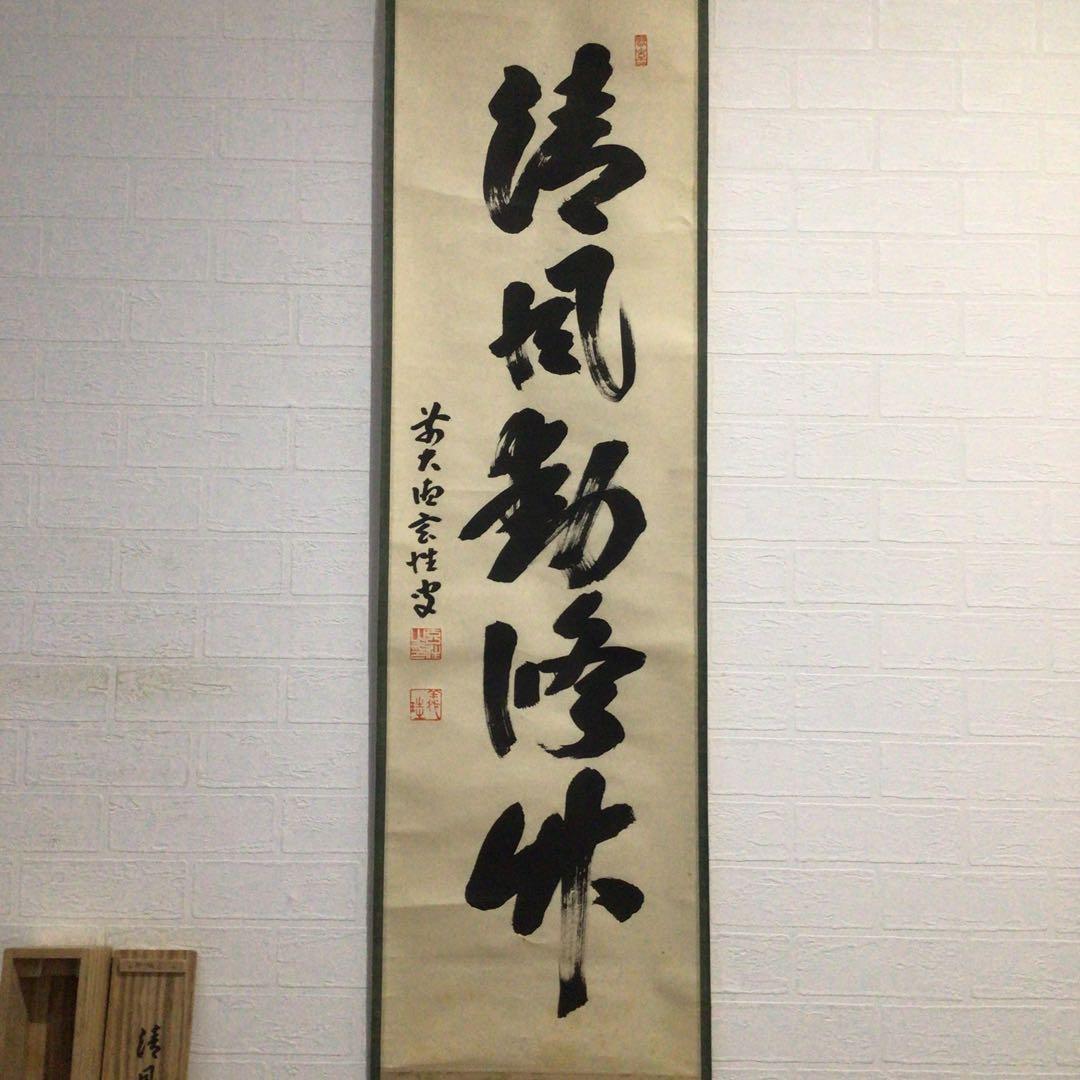 清風動脩竹
前大徳玄性叟
清風